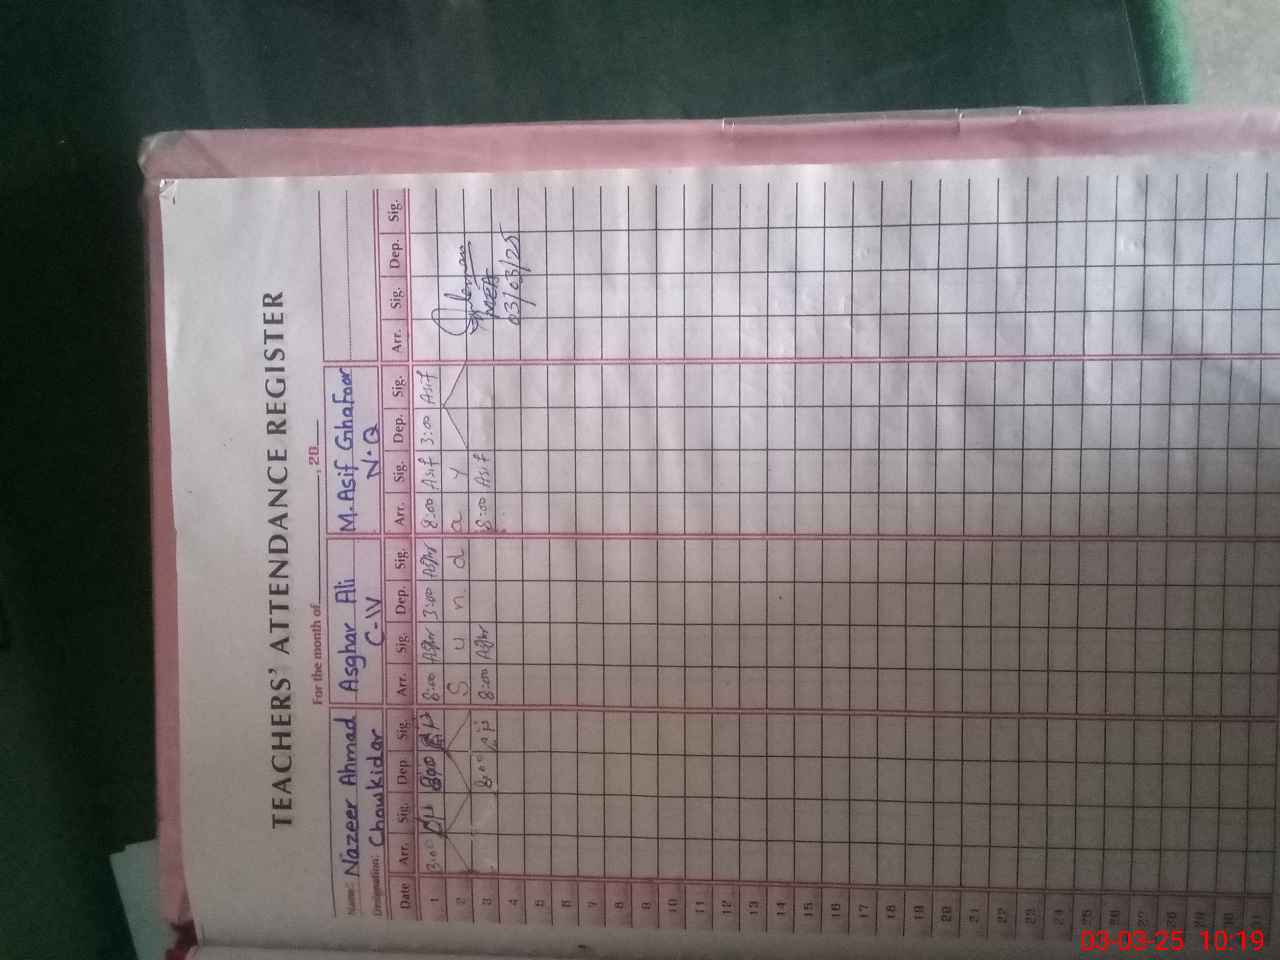 TEACHERS' ATTENDANCE REGISTER
For the month of , 20
Name: Nazeer Ahmad Asghar Ali M. Asif Ghafoor
Designation: Chowkidar C-IV N.Q
Date Arr. Sig. Dep. Sig. Arr. Sig. Dep. Sig. Arr. Sig. Dep. Sig. Arr. Sig. Dep. Sig.
1 3:00 800 8:00 3:00 8:00 Asif 3:00 Asif
2 S u n d a y
3 8:00 8:00 8:00 Asif
MEA
03/03/25
4
5
6
7
8
9
10
11
12
13
14
15
16
17
18
19
20
21
22
23
24
25
26
27
28
29
30
31
03-03-25 10:19